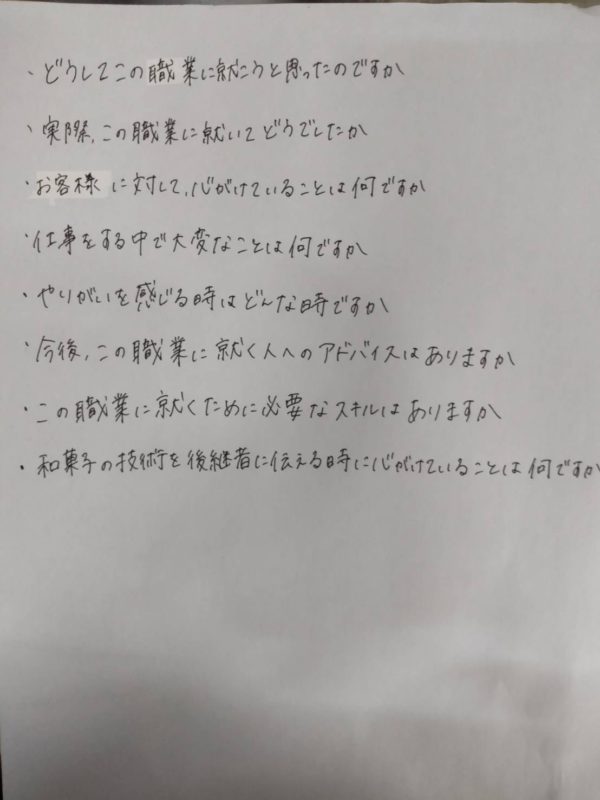 ・どうしてこの職業に就こうと思ったのですか
・実際、この職業に就いてどうでしたか
・お客様に対して、心がけていることは何ですか
・仕事をする中で大変なことは何ですか
・やりがいを感じる時はどんな時ですか
・今後、この職業に就く人へのアドバイスはありますか
・この職業に就くために必要なスキルはありますか
・和菓子の技術を後継者に伝える時に心がけていることは何ですか